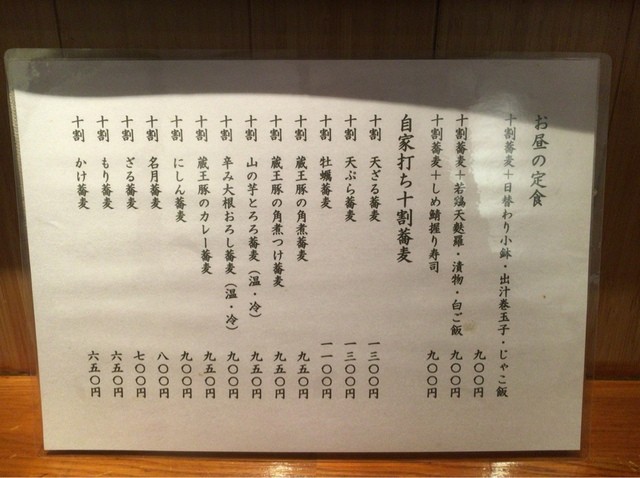 お昼の定食
十割蕎麦+日替わり小鉢・出汁巻玉子・じゃこ飯
九〇〇円
十割蕎麦+若鶏天麩羅・漬物・白ご飯 九〇〇円
十割蕎麦+しめ鯖握り寿司 九〇〇円
自家打ち十割蕎麦
十割 天ざる蕎麦 一三〇〇円
十割 天ぷら蕎麦 一三〇〇円
十割 牡蠣蕎麦 一一〇〇円
十割 蔵王豚の角煮蕎麦 九五〇円
十割 蔵王豚の角煮つけ蕎麦 九五〇円
十割 山の芋とろろ蕎麦(温・冷) 九五〇円
十割 辛み大根おろし蕎麦(温・冷) 九〇〇円
十割 蔵王豚のカレー蕎麦 九五〇円
十割 にしん蕎麦 九〇〇円
十割 名月蕎麦 八〇〇円
十割 ざる蕎麦 七〇〇円
十割 もり蕎麦 六五〇円
十割 かけ蕎麦 六五〇円